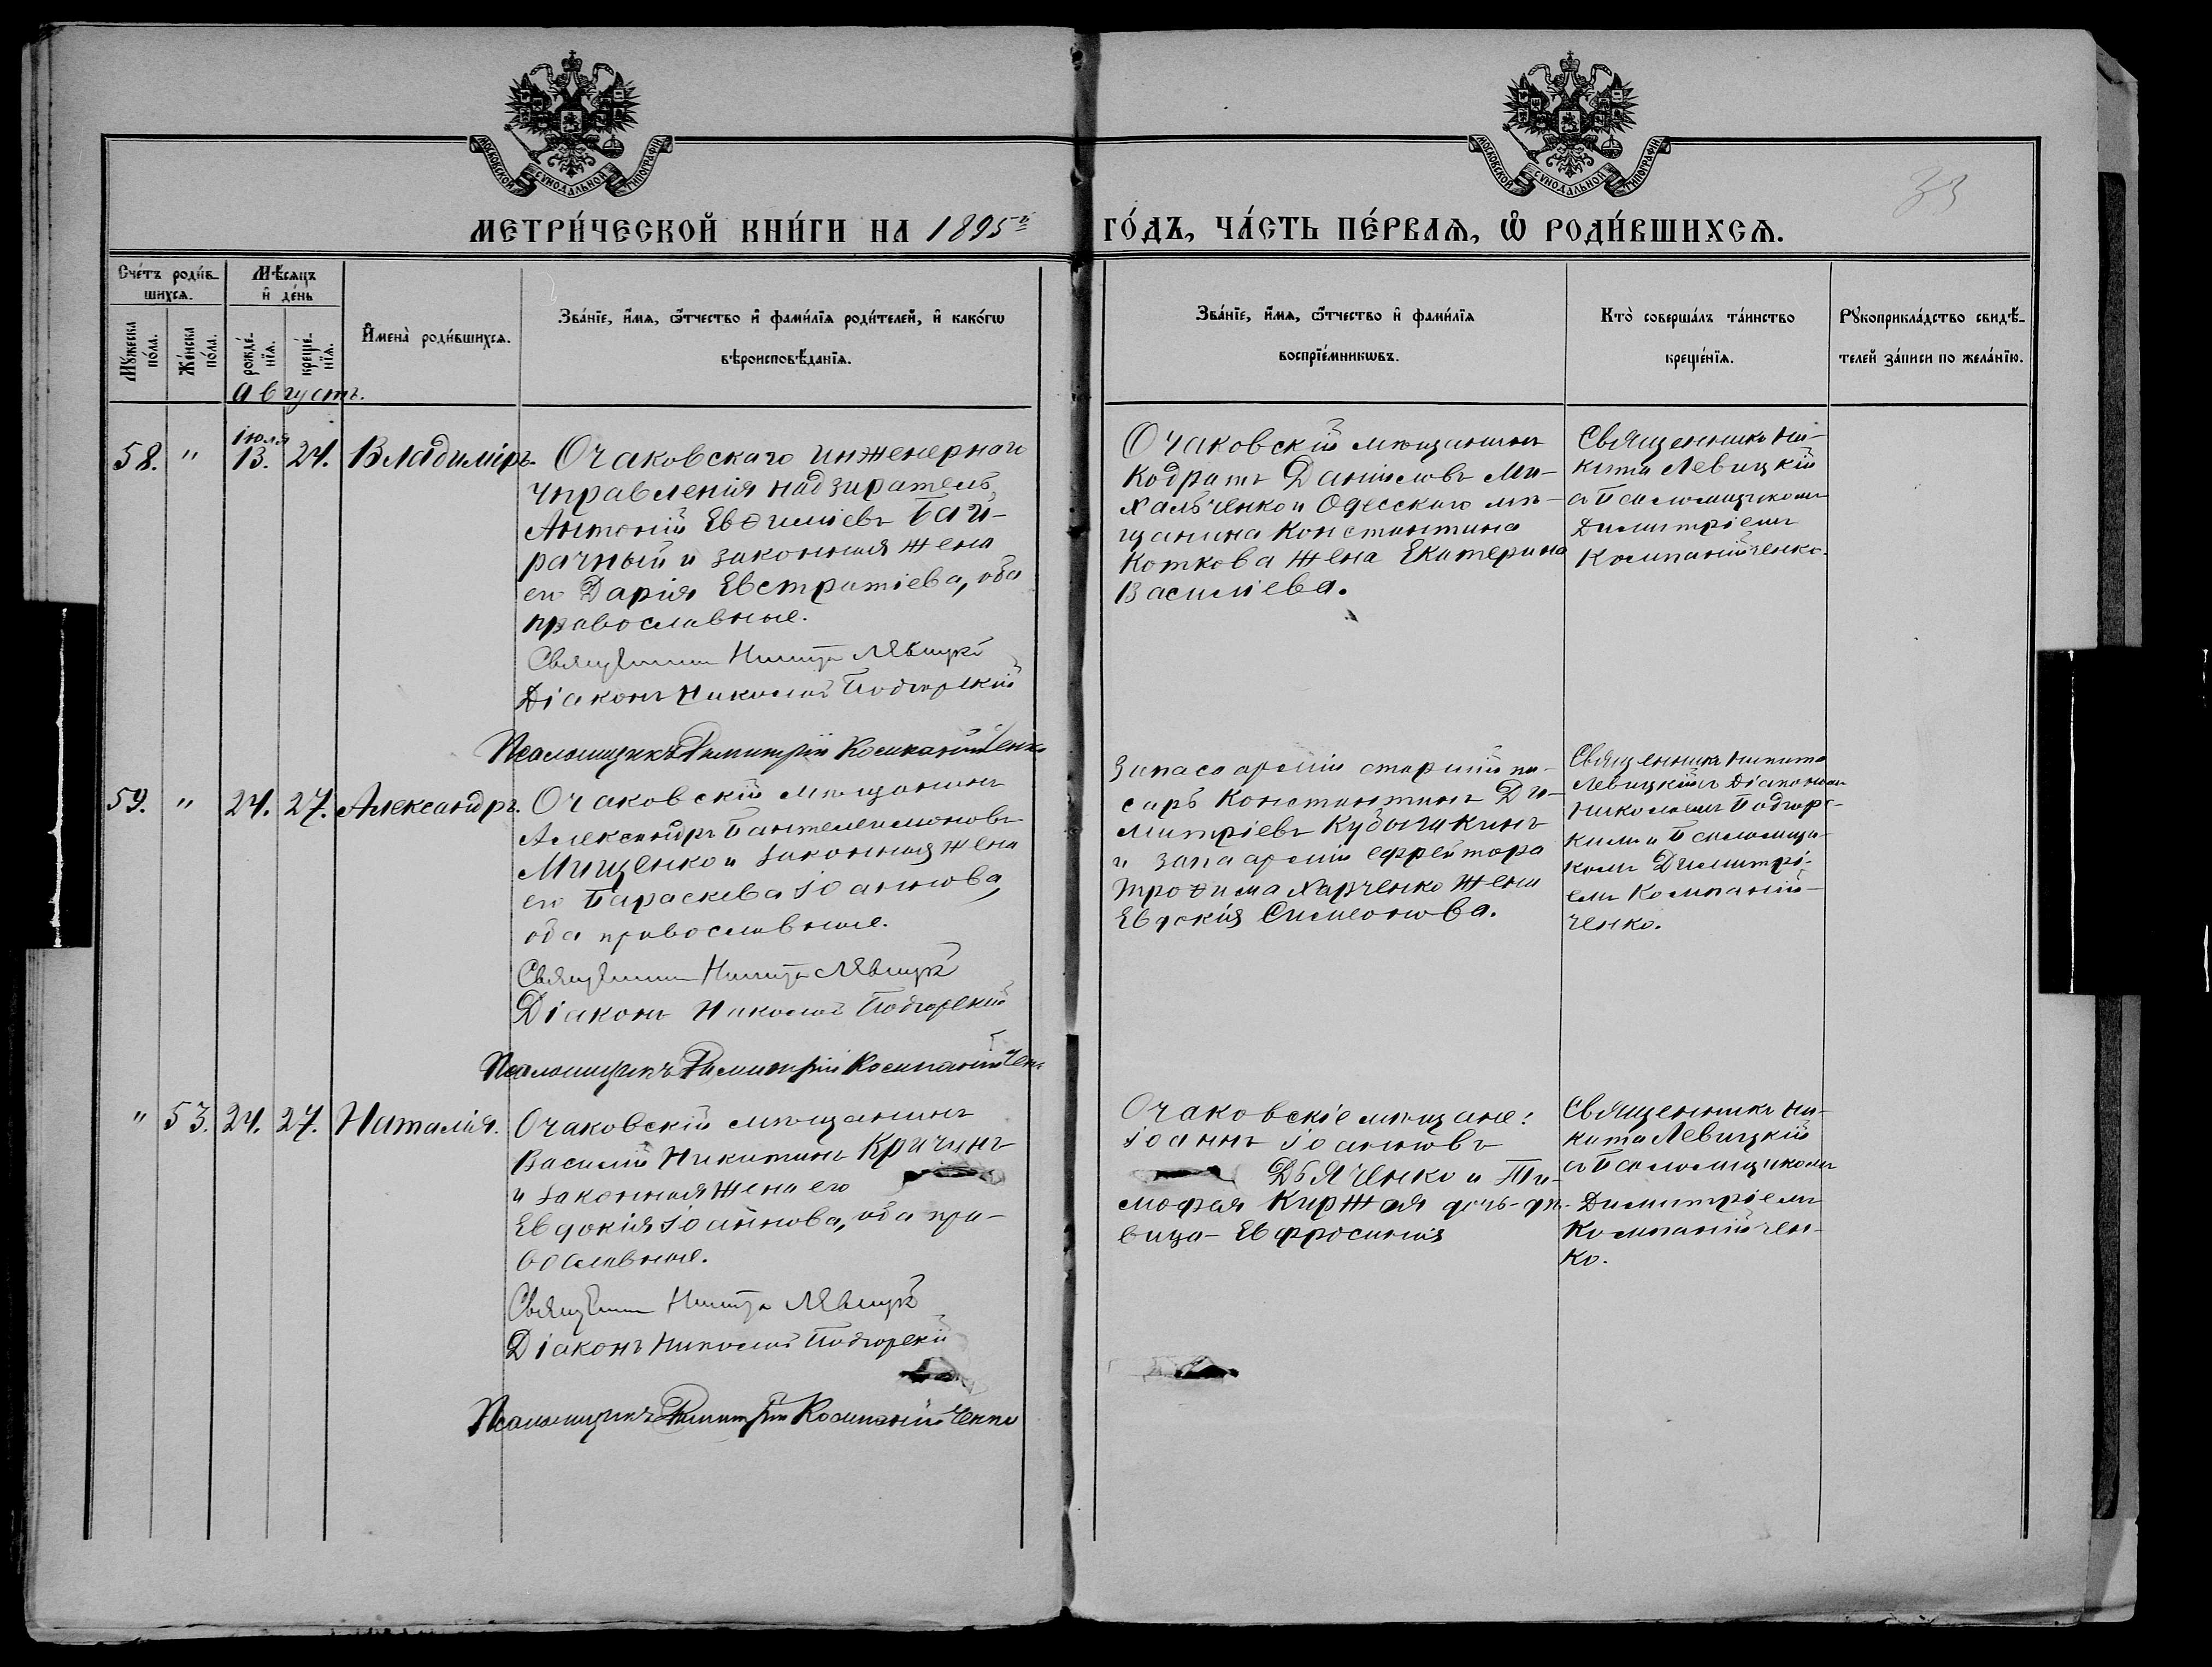 МОСКОВСКОЙ СѴНОДАЛЬНОЙ ТИПОГРАФІИ
МОСКОВСКОЙ СѴНОДАЛЬНОЙ ТИПОГРАФІИ
33
МЕТРИ́ЧЕСКОЙ КНИ́ГИ НА 1895й
ГО́ДЪ, ЧА́СТЬ ПЕ́РВАѦ, Ѡ҆ РОДИ́ВШИХСѦ.
Сче́тъ роди́в-
шихсѧ.
Мꙋжеска по́ла.
Же́нска по́ла.
Мѣ́сѧцъ
и҆ де́нь
рожде́-
нїѧ.
креще́-
нїѧ.
И҆мена̀ роди́вшихсѧ.
Зва́нїе, и҆́мѧ, ѻ҆́тчество и҆ фами́лїѧ роди́телей, и҆ како́гѡ
вѣроисповѣ́данїѧ.
Зва́нїе, и҆́мѧ, ѻ҆́тчество и҆ фами́лїѧ
воспрїе́мникѡвъ.
Кто̀ соверша́лъ та́инство
креще́нїѧ.
Рꙋкоприкла́дство свидѣ́-
телей за́писи по жела́нїю.
Августъ.
58.
"
Іюля
13.
24.
Владиміръ.
Очаковскаго инженернаго
управленія надзиратель
Антоній Евѳиміевъ Бай-
рачный и законная жена
его Дарія Евстратіева, оба
православные.
Священникъ Никита Левицкій
Діаконъ Николай Подгорскій
Псаломщикъ Димитрій Компанійченко
Очаковскій мѣщанинъ
Кодратъ Даніиловъ Ми-
хальченко и Одесскаго мѣ-
щанина Константина
Коткова жена Екатерина
Василіева.
Священникъ Ни-
кита Левицкій
съ Псаломщикомъ
Димитріемъ
Компанійченко.
59.
"
24.
27.
Александръ.
Очаковскій мѣщанинъ
Александръ Пантелеимоновъ
Мищенко и законная жена
его Параскева Іоаннова,
оба православные.
Священникъ Никита Левицкій
Діаконъ Николай Подгорскій
Псаломщикъ Димитрій Компанійченко
Запаса арміи старшій пи-
сарь Константинъ Ди-
митріевъ
и запа арміи ефрейтора
Трофима Харченко жена
Евдокія Симеонова.
Священникъ Никита
Левицкій съ Діакономъ
Николаемъ Подгорс-
кимъ и Псаломщи-
комъ Димитрі-
емъ Компаній-
ченко.
"
53.
24.
27.
Наталія.
Очаковскій мѣщанинъ
Василій Никитинъ Кричинъ
и законная жена его
Евдокія Іоаннова, оба пра-
вославные.
Священникъ Никита Левицкій
Діаконъ Николай Подгорскій
Псаломщикъ Димитрій Компанійченко
Очаковскіе мѣщане:
Іоаннъ Іоанновъ
Дьяченко и Ти-
мофея Киржая дочь-дѣ-
вица- Евфросинія
Священникъ Ни-
кита Левицкій
съ Псаломщикомъ
Димитріемъ
Компанійчен-
ко.